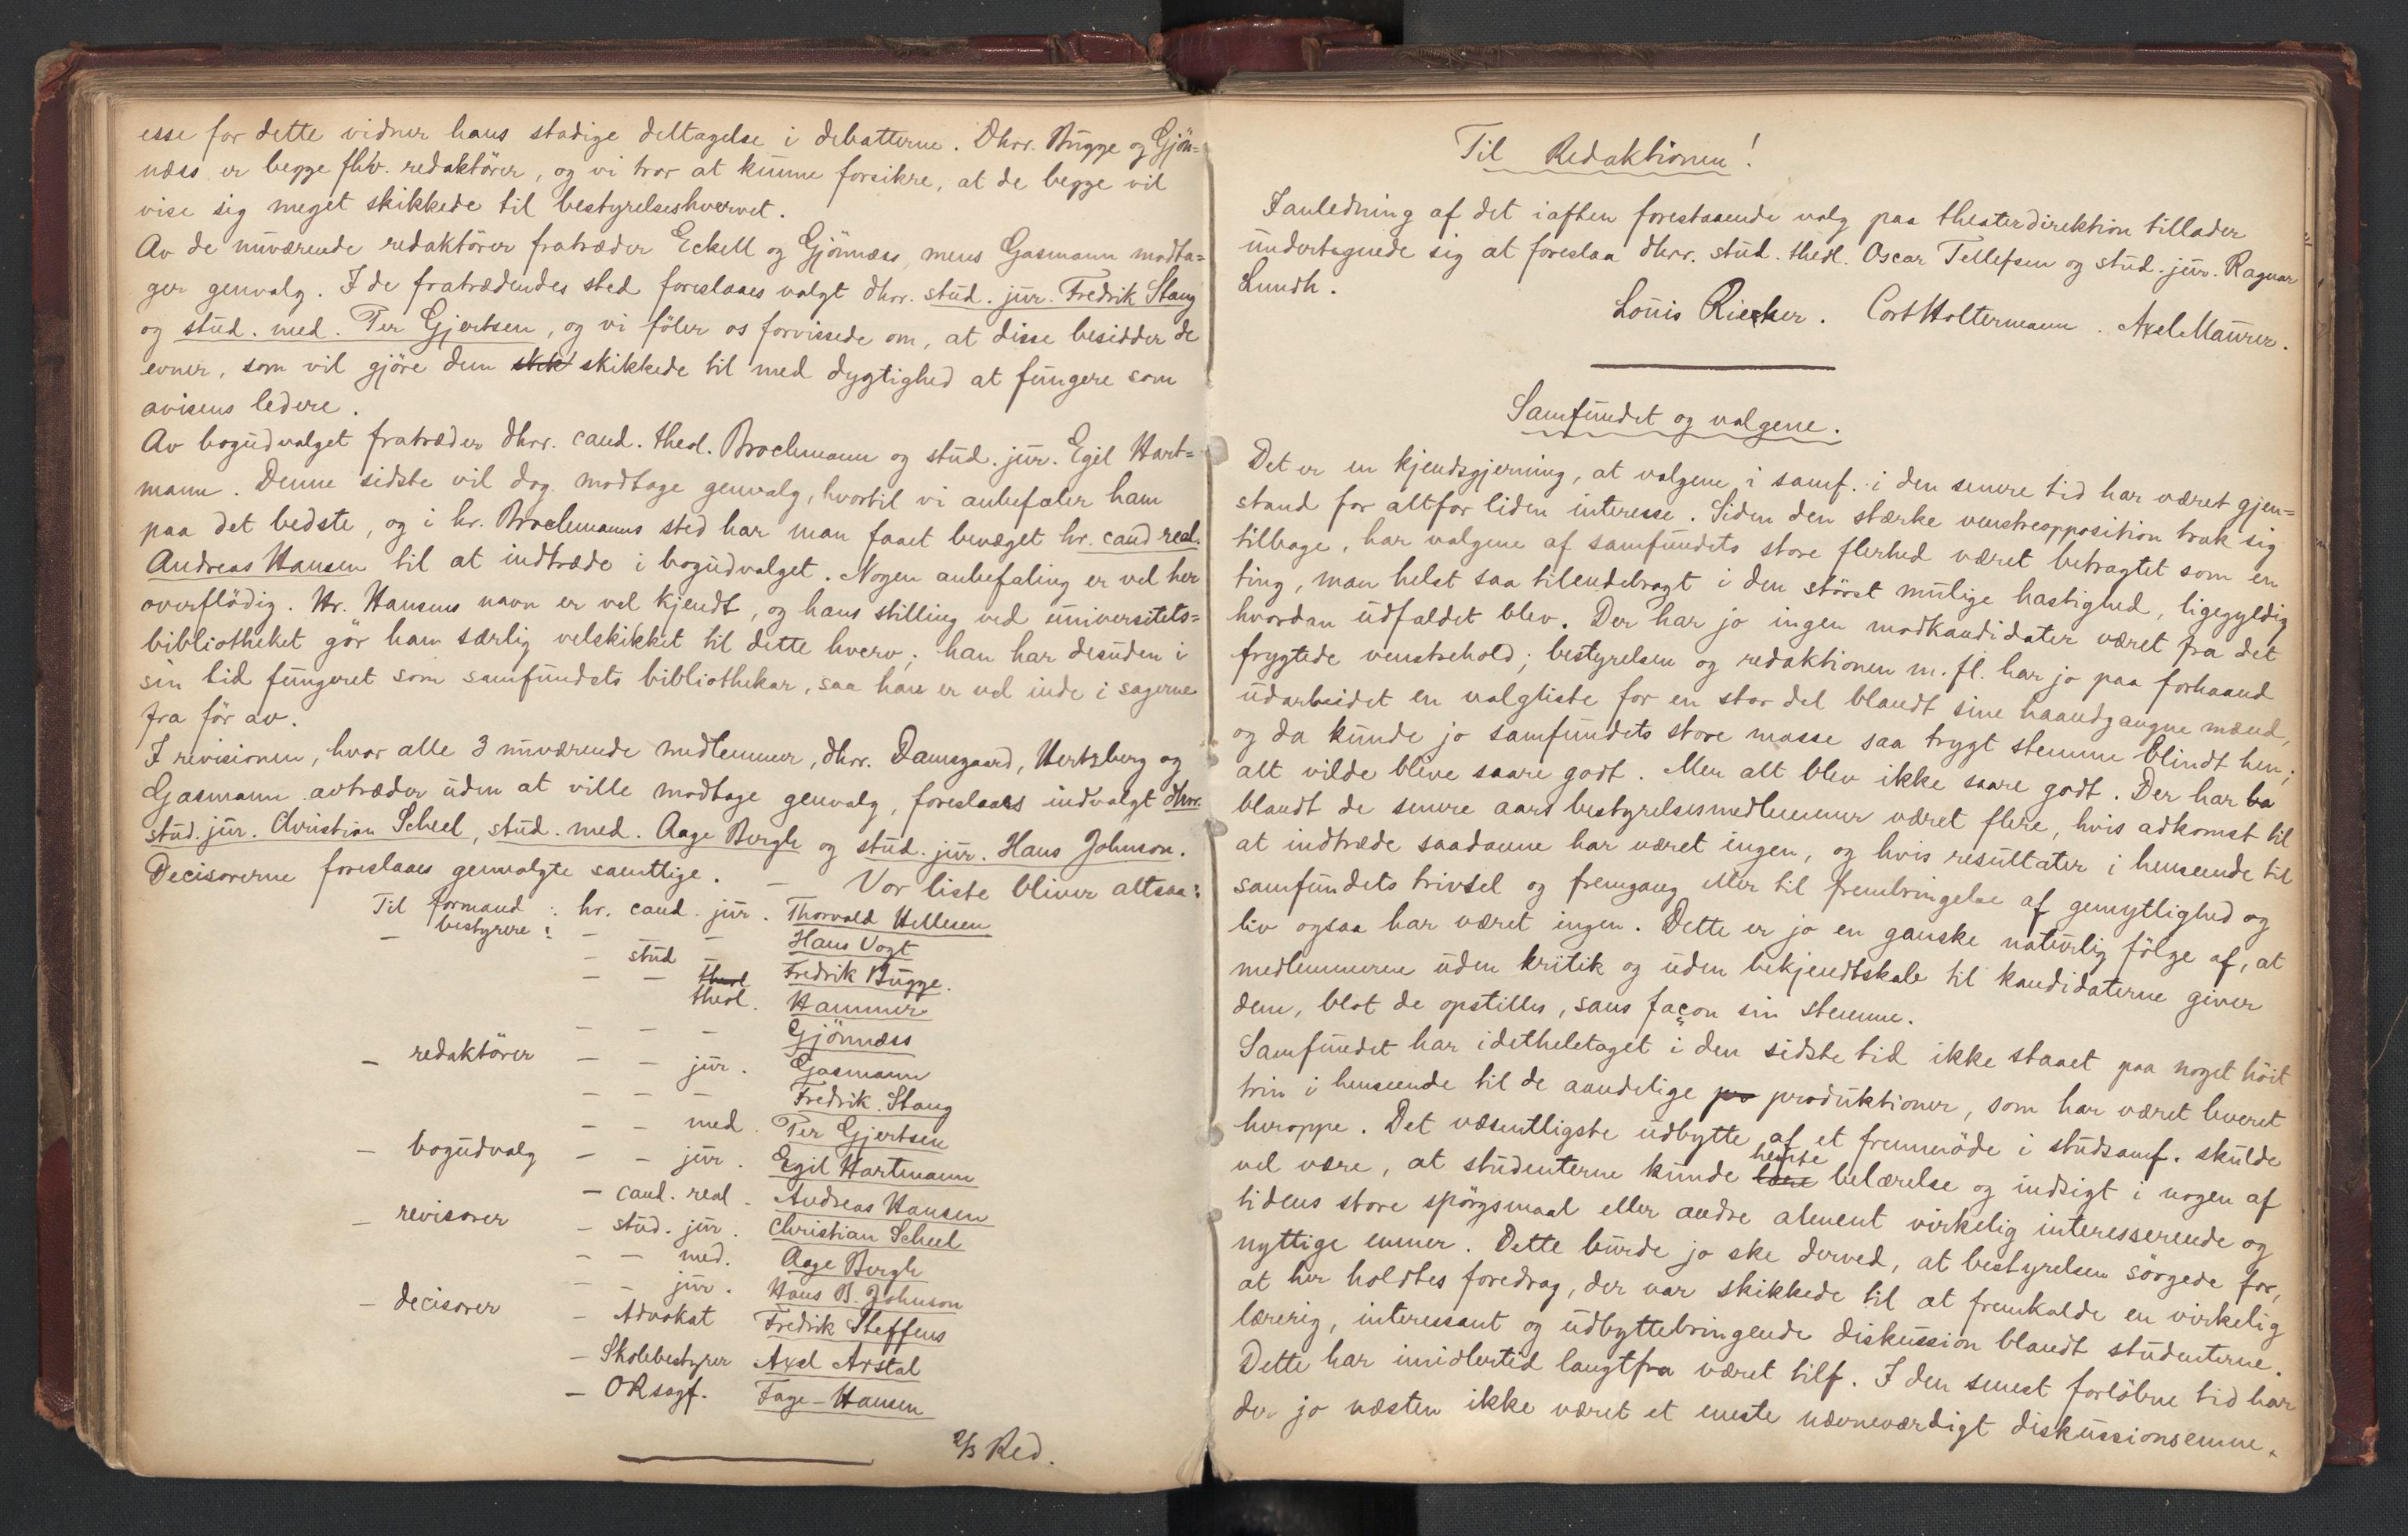 esse for dette vidner hans stadige deltagelse i debatterne. Dhrr. Bugge og Gjön=
næss er begge fhv. redaktörer, og vi tror at kunne forsikre, at de begge vil
vise sig meget skikkede til bestyrelseshvervet.
Av de nuværende redaktörer fratræder Eckell og Gjönnæss, mens Gasmann modta=
ger genvalg. I de fratrædendes sted foreslaaes valgt dhrr. stud. jur. Fredrik Stang
og stud. med. Per Gjertsen, og vi föler os forvissede om, at disse besidder de
evner, som vil gjöre dem skik skikkede til med dygtighed at fungere som
avisens ledere.
Av bogudvalget fratræder dhrr. cand. theol. Brochmann og stud. jur. Egil Hart=
mann. Denne sidste vil dog modtage genvalg, hvortil vi anbefaler ham
paa det bedste, og i hr. Brochmanns sted har man faaet bevæget hr. cand real.
Andreas Hansen til at indtræde i bogudvalget. Nogen anbefaling er vel her
overflödig. Hr. Hansens navn er vel kjendt, og hans stilling ved universitets=
bibliotheket gör ham særlig velskikket til dette hverv; han har desuden i
sin tid fungeret som samfundets bibliothekar, saa han er vel inde i sagerne
fra för av.
I revisionen, hvor alle 3 nuværende medlemmer, dhrr. Damsgaard, Hertzberg og
Gasmann avtræder uden at ville modtage genvalg, foreslaaes indvalgt dhrr.
stud. jur. Christian Scheel, stud. med. Aage Bergh og stud. jur. Hans Johnson.
Decisorerne foreslaaes genvalgte samtlige. – Vor liste bliver altsaa:
Til formand : hr. cand. jur. Thorvald Hellesen
– bestyrere : – – – Hans Vogt
– stud – Fredrik Bugge.
– – theol theol. Hammer
– – – Gjönnæss
– redaktörer – – jur. Gasmann
– – – Fredrik Stang
– – med. Per Gjertsen
– bogudvalg – – jur. Egil Hartmann
– cand. real. Andreas Hansen
– revisorer – stud. jur. Christian Scheel
– – med. Aage Bergh
– – jur. Hans B. Johnson
– decisorer – Advokat Fredrik Steffens
– Skolebestyrer Axel Arstal
– ORsagf. Tage-Hansen
2/3 Red.
Til Redaktionen!
Ianledning af det iaften forestaaende valg paa theaterdirektion tillader
undertegnede sig at foreslaa dhrr. stud. theol. Oscar Tellefsen og stud. jur. Ragnar
Lundh.
Louis Riecker. Cort Holtermann. Axel Maurer.
Samfundet og valgene.
Det er en kjendsgjerning, at valgene i samf. i den senere tid har været gjen=
stand for altfor liden interesse. Siden den stærke venstreopposition trak sig
tilbage, har valgene af samfundets store flerhed været betragtet som en
ting, man helst saa tilendebragt i den störst mulige hastighed, ligegyldig
hvordan udfaldet blev. Der har jo ingen modkandidater været fra det
frygtede venstrehold; bestyrelsen og redaktionen m. fl. har jo paa forhaand
udarbeidet en valgliste for en stor del blandt sine haandgangne mænd,
og da kunde jo samfundets store masse saa trygt stemme blindt hen;
alt vilde blive saare godt. Men alt blev ikke saare godt. Der har
blandt de senere aars bestyrelsesmedlemmer været flere, hvis adkomst til
at indtræde saadanne har været ingen, og hvis resultater i henseende til
samfundets trivsel og fremgang eller til frembringelse af gemytlighed og
liv ogsaa har været ingen. Dette er jo en ganske naturlig fölge af, at
medlemmerne uden kritik og uden bekjendtskab til kandidaterne giver
dem, blot de opstilles, sans façon sin stemme.
Samfundet har idetheletaget i den sidste tid ikke staaet paa noget höit
trin i henseende til de aandelige pro produktioner, som har været leveret
heroppe. Det væsentligste udbytte af et fremmöde i studsamf. skulde
vel være, at studenterne kunde lære hente belærelse og indsigt i nogen af
tidens store spörgsmaal eller andre alment virkelig interesserende og
nyttige emner. Dette burde jo ske derved, at bestyrelsen sörgede for,
at her holdtes foredrag, der var skikkede til at fremkalde en virkelig
lærerig, interessant og udbyttebringende diskussion blandt studenterne.
Dette har imidlertid langtfra været tilf. I den senest forlöbne tid har
der jo næsten ikke været et eneste nævneværdigt diskussionsemne.